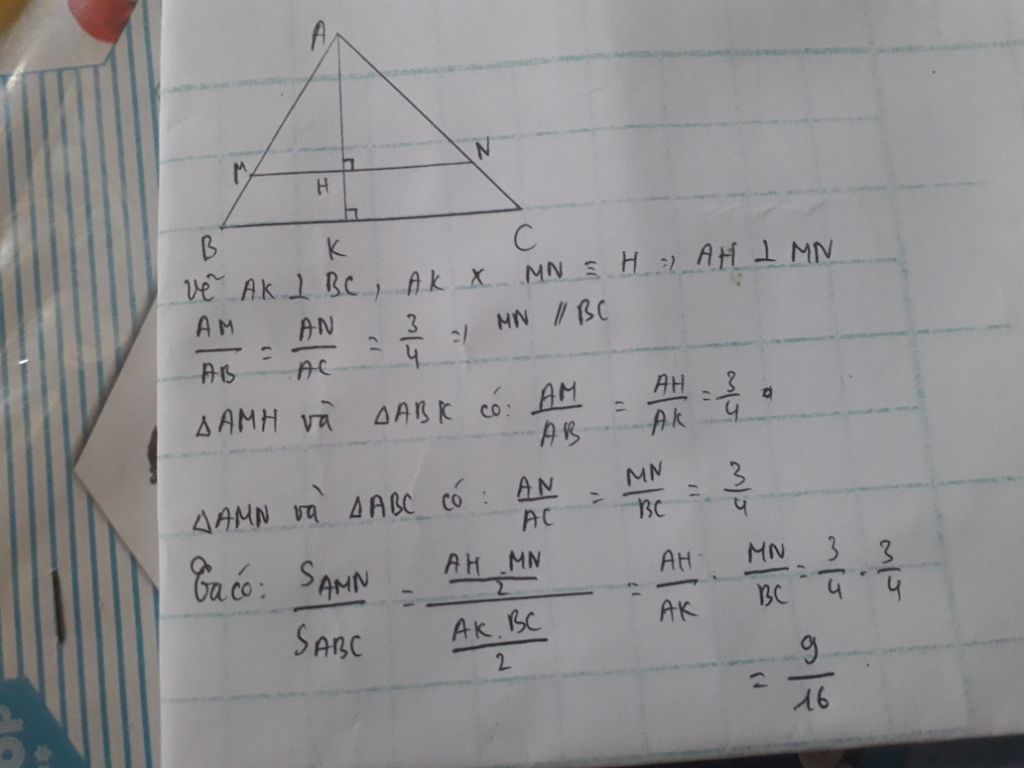 A
M
N
H
B
K
C
Vẽ AK ⊥ BC, AK x MN ≡ H => AH ⊥ MN
AM/AB = AN/AC = 3/4 => MN // BC
ΔAMH và ΔABK có: AM/AB = AH/AK = 3/4
ΔAMN và ΔABC có: AN/AC = MN/BC = 3/4
Ta có: S_AMN/S_ABC = (AH.MN/2)/(AK.BC/2) = AH/AK . MN/BC = 3/4 . 3/4
= 9/16